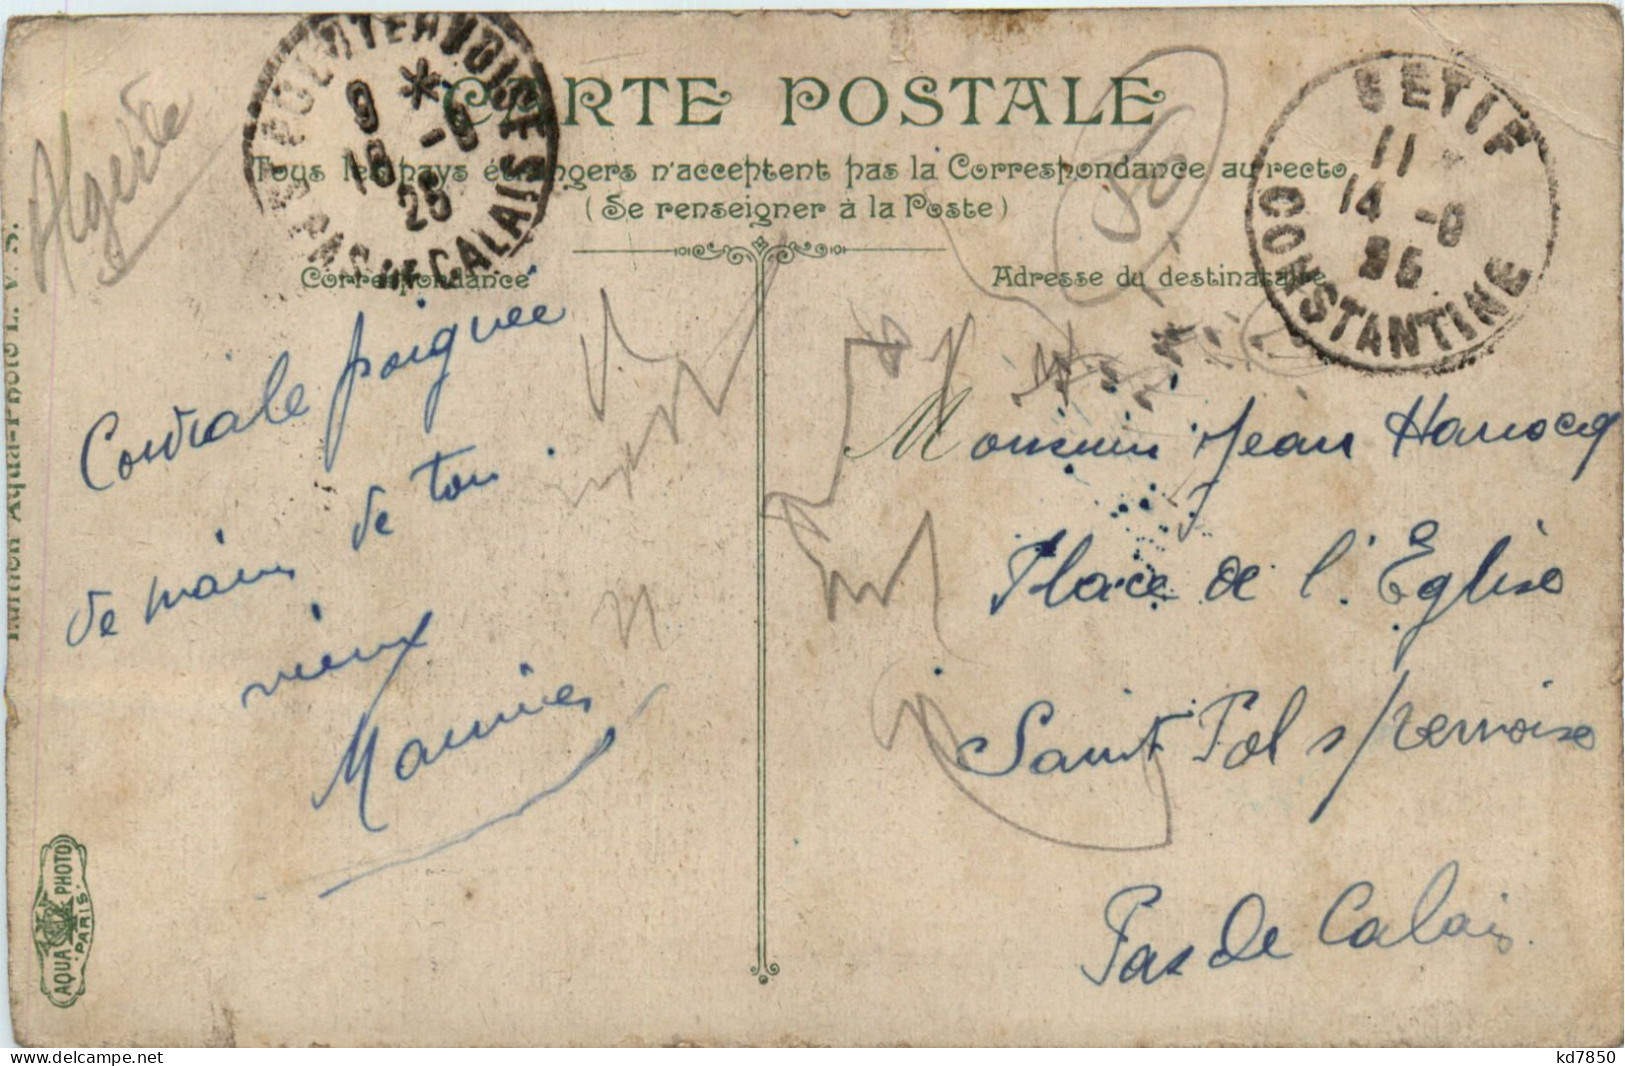 CARTE POSTALE
Tous les pays étrangers n'acceptent pas la Correspondance au recto
(Se renseigner à la Poste)
Correspondance
Adresse du destinataire
Algérie
9 *
18 -8
25
PAS DE CALAIS
SETIF
11
14 -8
25
CONSTANTINE
Cordiale poignée
de main de ton
vieux
Maurice
Monsieur Jean
Place de l'Eglise
Saint Pol s/Ternoise
Pas de Calais
Edition Aqua-Photo L. V. S.
AQUA PHOTO
PARIS
kd7850